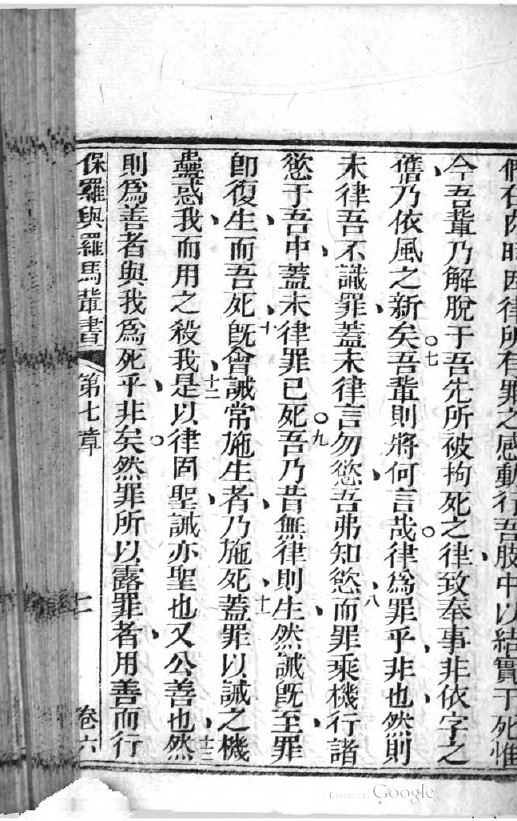 們在肉時因律所有罪之感動行吾肢中以結實于死惟
今吾輩乃解脫于吾先所被拘死之律致奉事非依字之
舊乃依風之新矣。七吾輩則將何言哉。律為罪乎、非也、然則
未律吾不識罪、蓋未律言勿慾、吾弗知慾、八而罪乘機行諸
慾于吾中、蓋未律罪已死。九吾乃昔無律則生、然誡旣至、罪
卽復生、而吾死、十旣會誡常施生者、乃施死、十一蓋罪以誡之機
蠱惑我、而用之殺我、十二是以律固聖、誡亦聖也、又公善也、十三然
則為善者與我為死乎、非矣。然罪所以露罪者、用善而行
保羅與羅馬輩書 第七章 二 卷六
Google